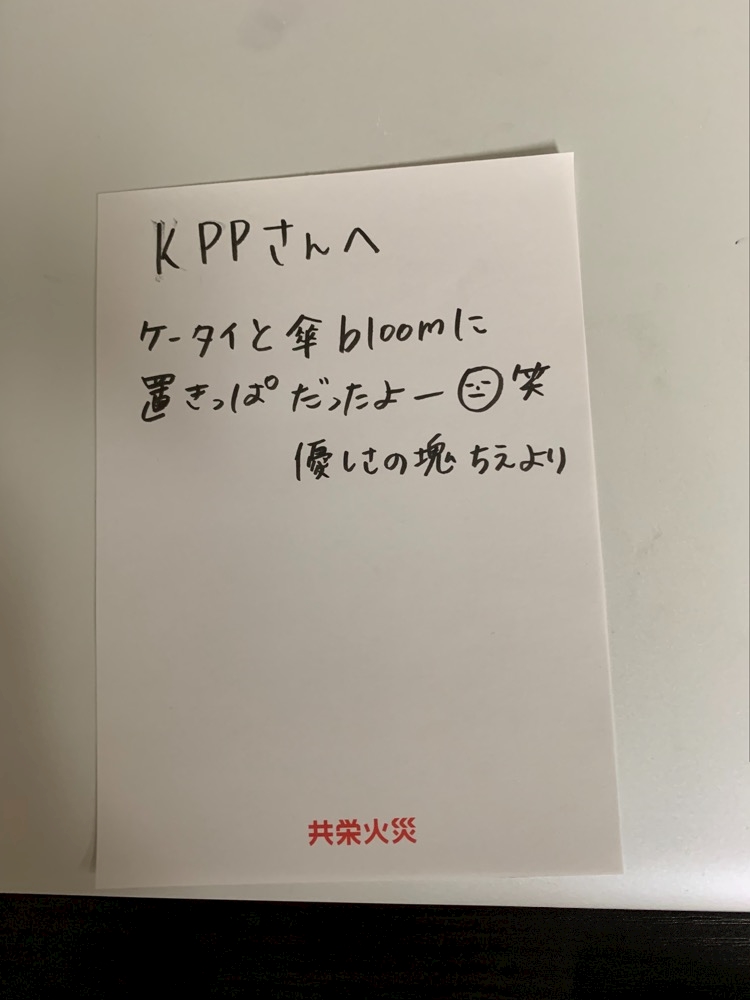 KPPさんへ
ケータイと傘bloomに
置きっぱだったよー笑
優しさの塊ちえより
共栄火災